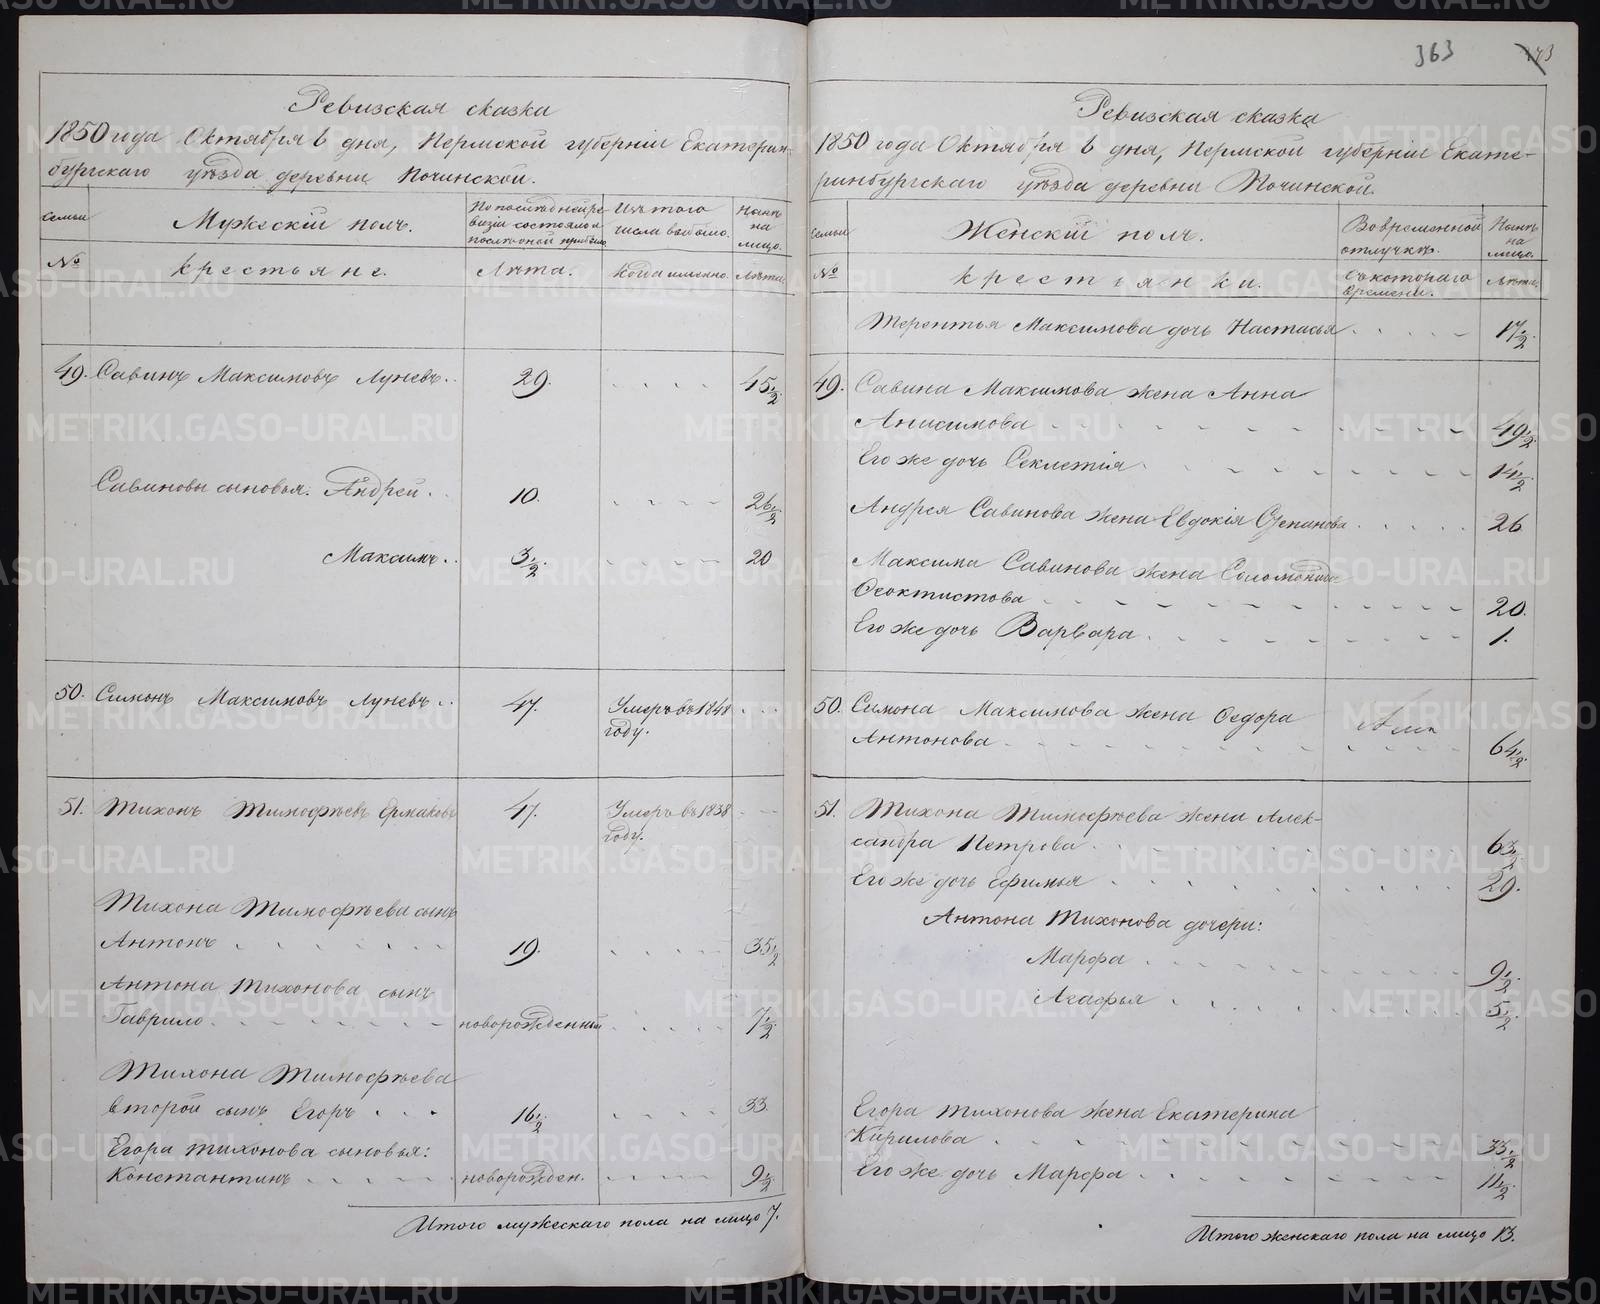 363
173
Ревизская сказка
1850 года Октября 6 дня, Пермской губерніи Екатерин-
бургскаго уѣзда деревни Починской.
Семьи
Мужескій полъ.
По последней ре-
визіи состояло и
после оной прибыло
Изъ того
числа выбыло.
Нынѣ
на
лицо.
№
крестьяне.
Лѣта.
Когда именно.
Лѣта.
49. Савинъ Максимовъ Луневъ.. 29. 45½.
Савиновы сыновья. Андрей. 10. 26½
Максимъ.. 3½. 20
50. Симонъ Максимовъ Луневъ.. 47. Умеръ въ 1848
году.
51. Тихонъ Тимофѣевъ Ермаковъ 47. Умеръ въ 1838
году.
Тихона Тимофѣева сынъ
Антонъ 19. 35½
Антона Тихонова сынъ
Гаврило новорожденный 7½
Тихона Тимофѣева
второй сынъ Егоръ 16½ 33.
Егора Тихонова сыновья:
Константинъ новорожден. 9½
Итого мужескаго пола на лицо 7.
Ревизская сказка
1850 года Октября 6 дня, Пермской губерніи Екате-
ринбургскаго уѣзда деревни Починской.
Семьи
Женскій полъ.
Во временной
отлучкѣ.
Нынѣ
на
лицо.
№
крестьянки.
Съ котораго
времени.
Лѣта.
Терентья Максимова дочь Настасья 17½.
49. Савина Максимова жена Анна
Анисимова 49½
Его же дочь Секлетія 14½
Андрея Савинова жена Евдокія Степанова 26
Максима Савинова жена Соломонида
Феоктистова 20.
Его же дочь Варвара 1.
50. Симона Максимова жена Федора
Антонова 64½
51. Тихона Тимофѣева жена Алек-
сандра Петрова 63½
Его же дочь Ефимья 29.
Антона Тихонова дочери:
Марфа 9½.
Агафья 5½
Егора Тихонова жена Екатерина
Кирилова 35½
Его же дочь Марфа 11½.
Итого женскаго пола на лицо 13.
METRIKI.GASO-URAL.RU